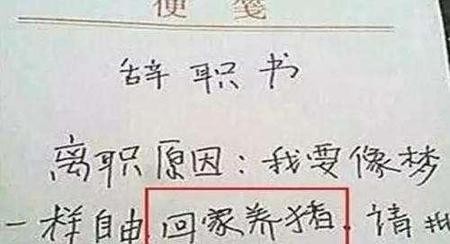 便笺
辞职书
离职原因：我要像梦
一样自由，回家养猪，请批